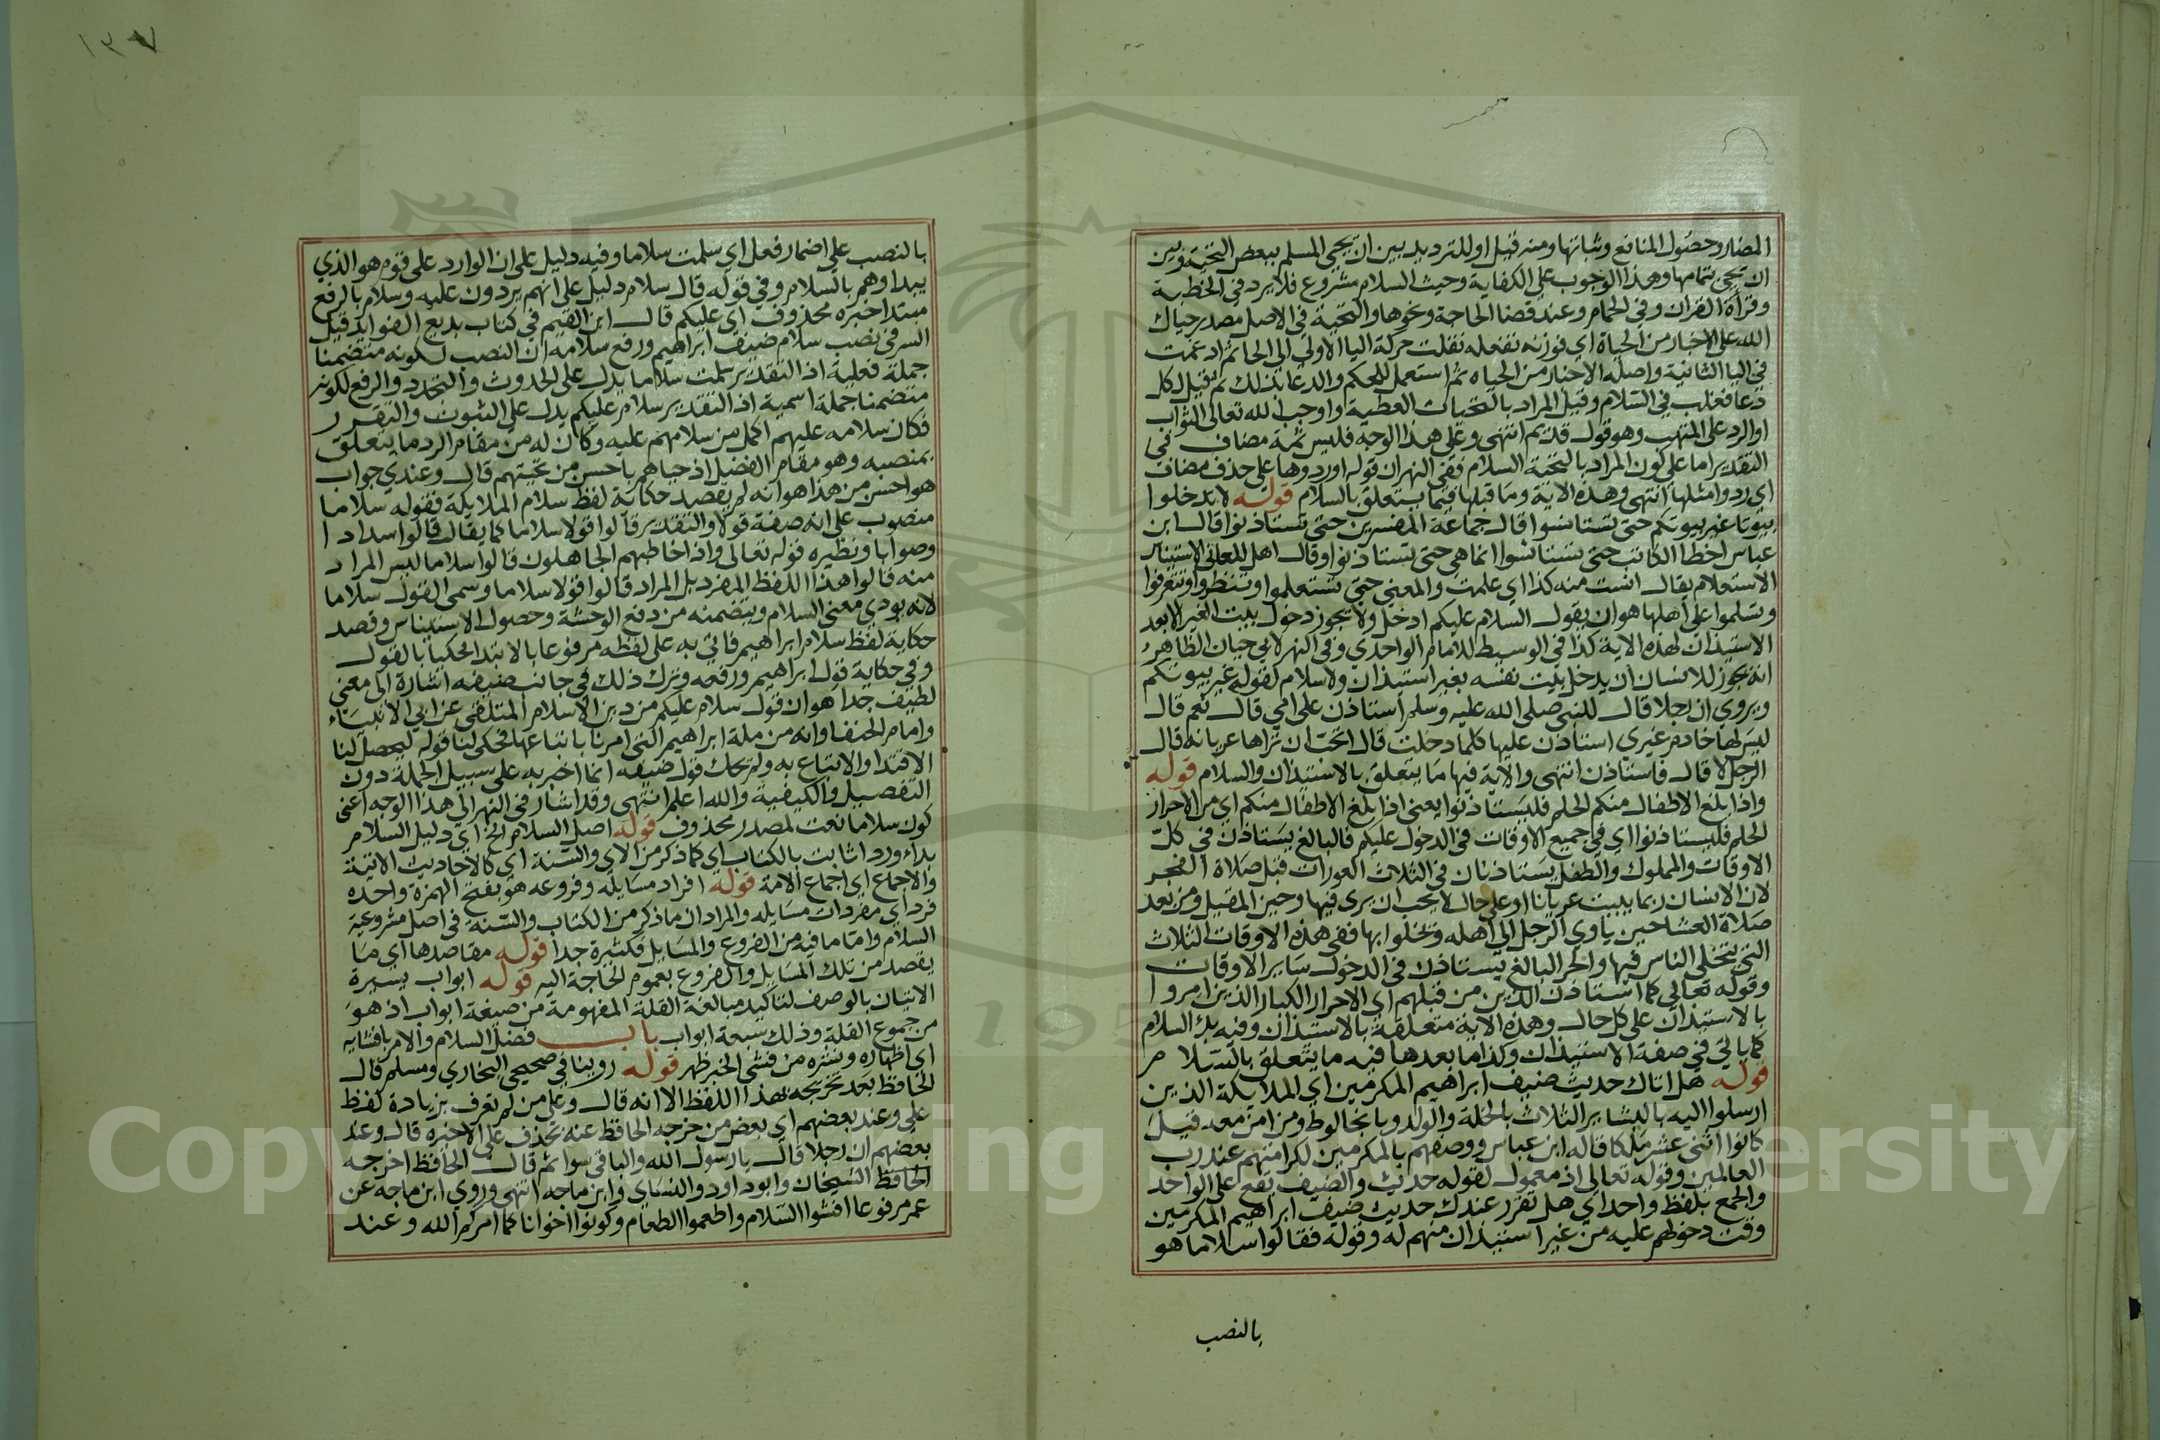 المضار وحصول المنافع وثباتها ومنه قيل او للترديد بين ان يحيي المسلم ببعض التحية وبين
ان يحيي بتمامها وهذا الوجوب على الكفاية وحيث السلام مشروع فلا يرد في الخطبة
وقرأة القران وفي الحمام وعند قضا الحاجة ونحوها والتحية في الاصل مصدر حياك
الله على الاخبار من الحياة اي فوزنه تفعله نقلت حركة اليا الاولى الى الحا ثم ادغمت
في اليا الثانية واصله الاخبار من الحياه ثم استعمل للحكم والدعا بذلك ثم قيل لكل
دعا فغلب في السلام وقيل المراد بالتحيات العطية واوجب الله تعالى الثواب
او الرد على المتهب وهو قول قديم انتهى وعلى هذا الوجه فليس ثمة مضاف في
التقدير اما على كون المراد بالتحية السلام ففي النهر ان قوله او ردوها على حذف مضاف
اي ردوا مثلها انتهى وهذه الاية وما قبلها فيما يتعلق بالسلام قوله لا تدخلوا
بيوتا غير بيوتكم حتى تستانسوا قال جماعة المفسرين حتى تستاذنوا قال ابن
عباس اخطا الكاتب حتى تستانسوا انما هي حتى تستاذنوا وقال اهل المعاني الاستيناس
الاستعلام يقال انست منه كذا اي علمت والمعنى حتى تستعلموا وتنظروا وتتعرفوا
وتسلموا على اهلها هو ان يقول السلام عليكم ادخل ولا يجوز دخول بيت الغير الا بعد
الاستيذان لهذه الاية كذا في الوسيط للامام الواحدي وفي النهر لابي حيان الظاهر
انه يجوز للانسان ان يدخل بيت نفسه بغير استيذان ولا سلام لقوله غير بيوتكم
ويروي ان رجلا قال للنبي صلى الله عليه وسلم أستاذن على امي قال نعم قال
ليس لها خادم غيري استاذن عليها كلما دخلت قال اتحب ان تراها عريانه قال
الرجل لا قال فاستاذن انتهى والآية فيها ما يتعلق بالاستيذان والسلام قوله
واذا بلغ الاطفال منكم الحلم فليستاذنوا يعني اذا بلغ الاطفال منكم اي من الاحرار
الحلم فليستاذنوا اي في جميع الاوقات في الدخول عليكم فالبالغ يستاذن في كل
الاوقات والمملوك والطفل يستاذنان في الثلاث العورات قبل صلاة الفجر
لان الانسان ربما يبيت عريانا او على حال لا يحب ان يرى فيها وحين المقيل ومن بعد
صلاة العشا حين ياوي الرجل الى اهله ويخلوا بها ففي هذه الاوقات الثلاث
التي يتخلى الناس فيها والحر البالغ يستاذن في الدخول ساير الاوقات
وقوله تعالى كما استاذن الذين من قبلهم اي الاحرار الكبار الذين امروا
بالاستيذان على كل حال وهذه الاية متعلقة بالاستيذان وفيه بدء السلام
كما ياتي في صفة الاستيذان وكذا ما بعدها فيه ما يتعلق بالسلام
قوله هل اتاك حديث ضيف ابراهيم المكرمين اي الملايكة الذين
ارسلوا اليه بالبشاير الثلاث بالخلة والولد وبانجا لوط ومن امن معه قيل
كانوا اثني عشر ملكا قاله ابن عباس ووصفهم بالمكرمين لكرامتهم عند رب
العالمين وقوله تعالى اذ معمول لقوله حديث والضيف يقع على الواحد
والجمع بلفظ واحد اي هل تقرر عندك حديث ضيف ابراهيم المكرمين
وقت دخولهم عليه من غير استيذان منهم له وقوله فقالوا سلاما هو
بالنصب
١٣٧
بالنصب على اضمار فعل اي سلمت سلاما وفيه دليل على ان الوارد على قوم هو الذي
يبداوهم بالسلام وفي قوله قال سلام دليل على انهم يردون عليه وسلام بالرفع
مبتدا خبره محذوف اي عليكم قال ابن القيم في كتاب بديع الفوايد قيل
السر في نصب سلام ضيف ابراهيم ورفع سلامه ان النصب لكونه متضمنا
جملة فعلية اذ التقدير سلمت سلاما يدل على الحدوث والتجدد والرفع لكونه
متضمنا جملة اسمية اذ التقدير سلام عليكم يدل على الثبوت والتقرر
فكان سلامه عليهم اكمل من سلامهم عليه وكان له من مقام الرد ما يتعلق
بمنصبه وهو مقام الفضل اذ حياهم باحسن من تحيتهم قال وعندي جواب
هو احسن من هذا هو انه لم يقصد حكاية لفظ سلام الملايكة فقوله سلاما
منصوب على انه صفة قولا والتقدير قالوا قولا سلاما كما يقال قالوا سدادا
وصوابا ونظيره قوله تعالى واذا خاطبهم الجاهلون قالوا سلاما ليس المراد
منه قالوا هذا اللفظ المفرد بل المراد قالوا قولا سلاما وسمى القول سلاما
لانه يودي معنى السلام ويتضمنه من دفع الوحشة وحصول الاستيناس وقصد
حكاية لفظ سلام ابراهيم فاتي به على لفظه مرفوعا بالابتدا محكيا بالقول
وفي حكاية قول ابراهيم ورفعه وترك ذلك في جانب ضيفه اشارة الى معنى
لطيف جدا هو ان قول سلام عليكم من دين الاسلام المتلقى عن ابي الانبياء
وامام الحنفا وانه من ملة ابراهيم التي امرنا باتباعها فحكى لنا قوله ليحصل لنا
الاقتدا والاتباع به ولم يحك قول ضيفه انما اخبر به على سبيل الجملة دون
التفصيل والكيفية والله اعلم انتهى وقد اشار في النهر الى هذا الوجه اعني
كون سلاما نعت لمصدر محذوف قوله اصل السلام الخ اي دليل السلام
بداء وردا ثابت بالكتاب اي كما ذكر من الاي والسنة اي كالاحاديث الاتية
والاجماع اي اجماع الامة قوله افراد مسايله وفروعه هو بفتح الهمزة واحده
فرد اي مفردات مسايله والمراد ان ما ذكر من الكتاب والسنة في اصل مشروعية
السلام واما ما فيه من الفروع والمسايل فكثيرة جدا قوله مقاصدها اي ما
يقصد من تلك المسايل والفروع بعموم الحاجة اليه قوله ابواب يسيرة
الاتيان بالوصف لتاكيد مبالغة القلة المفهومة من صيغة ابواب اذ هو
من جموع القلة وذلك سبعة ابواب باب فضل السلام والامر بافشايه
اي اظهاره ونشره من فشى الخبر ظهر قوله روينا في صحيحي البخاري ومسلم قال
الحافظ بعد تخريجه بهذا اللفظ الا انه قال وعلى من لم تعرف بزيادة لفظ
على وعند بعضهم اي بعض من خرجه الحافظ عنه بحذف على الاخيره قال وعند
بعضهم ان رجلا قال يا رسول الله والباقي سوا ثم قال الحافظ اخرجه
الحافظ الشيخان وابو داود والنساي وابن ماجه انتهى وروي ابن ماجه عن
عمر مرفوعا افشوا السلام واطعموا الطعام وكونوا اخوانا كما امركم الله وعند